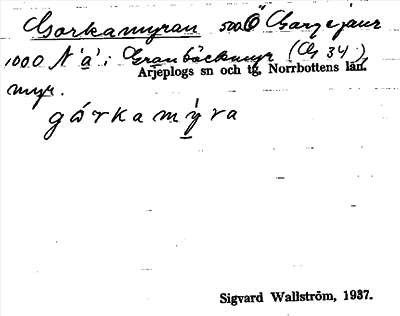 Gorkamyran 500 Ö Gargejaur
1000 N "a"; Granbäckmyr (G 34)
Arjeplogs sn och tg, Norrbottens län.
myr.
górkamỳra
Sigvard Wallström, 1937.